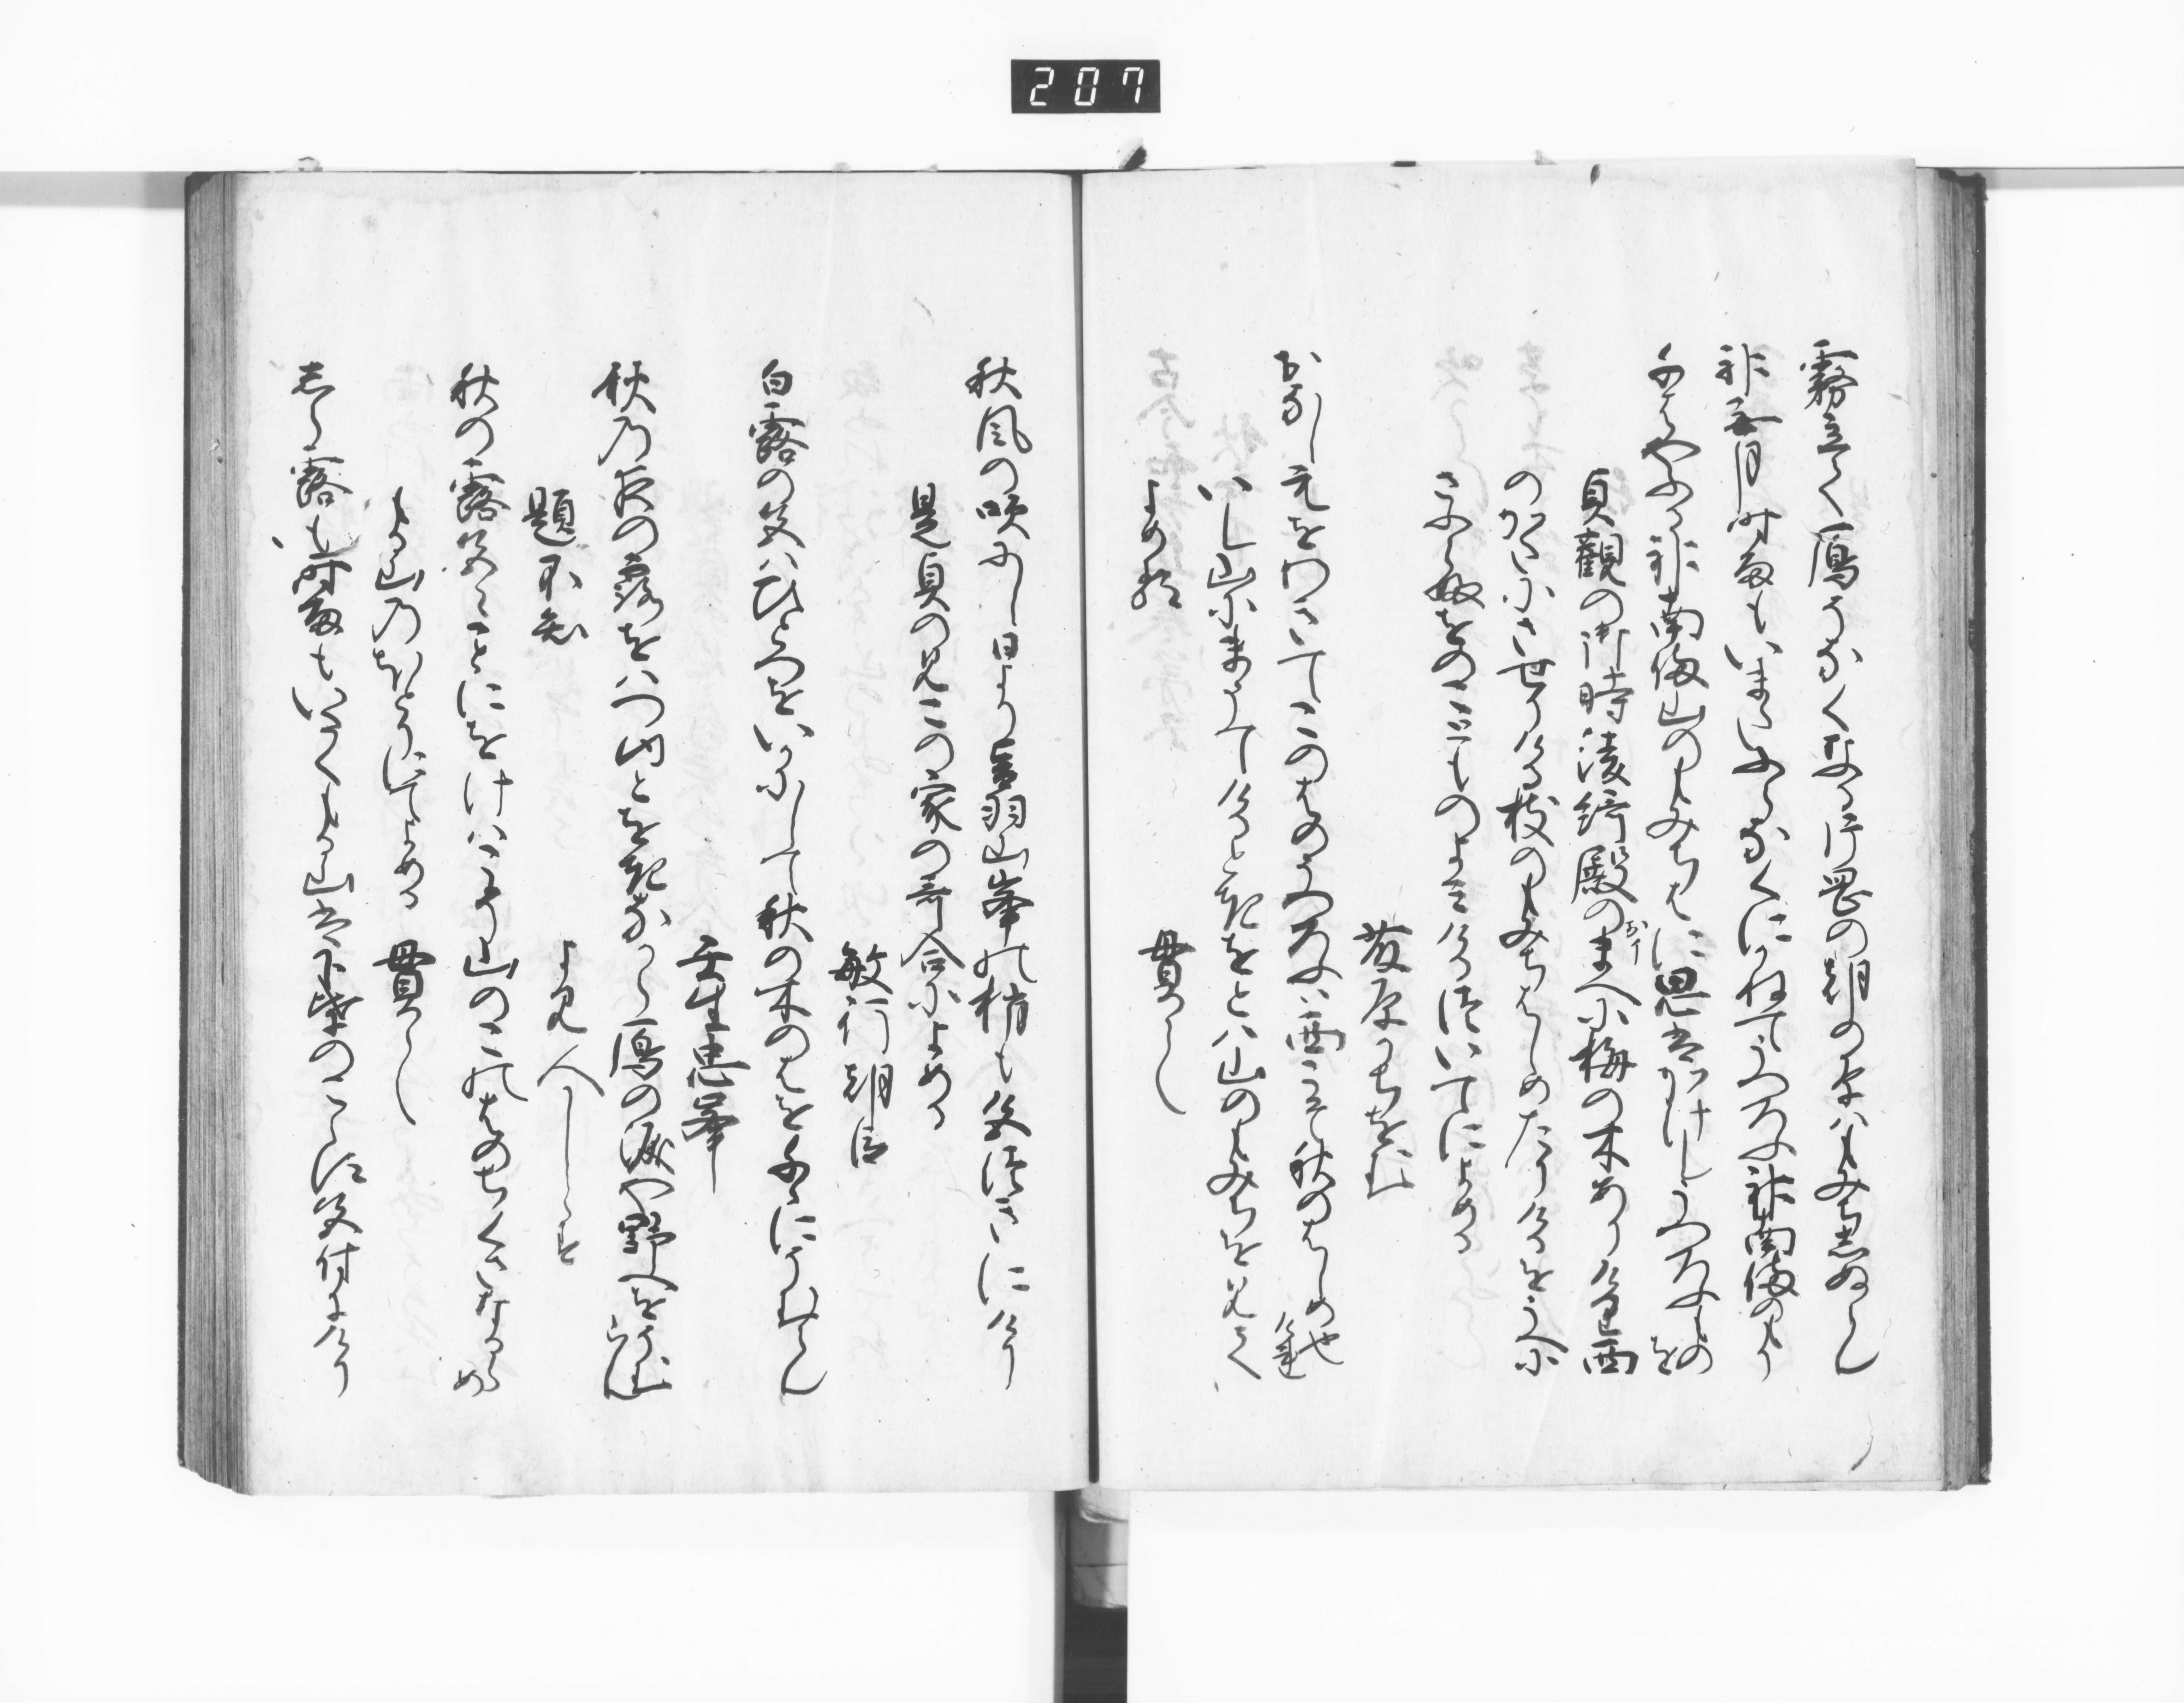 207
霧立て鴈そなくなる片岡の朝の原はもみちしぬらん
神無月時雨もいまたふらなくにかねてうつろふ神南備のもり
ちはやふる神南備山のもみちはに思はかけしうつろふものを
貞觀の御時綾綺殿のまへに梅の木ありけり西
のかたにさせりける枝のもみちはしめたりけるをうへに
さふらふをのことものよみけるついてによめる
藤原かちをむ
おなし元をわきてこのはのうつろふは西こそ秋のはしめ也けれ
いし山にまうてけるときをとは山のもみちを見て
よめる　貫之
秋風の吹にし日より音羽山峯の梢も色つきに
けり
是貞の見この家の哥合によめる
敏行朝臣
白露の色はひとつをいかにして秋の木のはをちゝにそむらん
壬生忠峯
秋乃夜の露をはつゆとをきなから鴈の涙や野へをそむらむ
題不知　よみ人しらす
秋の露色ことことにをけはこそ山のこのはのちくさなるらめ
もる山乃ほとりにてよめる　貫之
しら露も時雨もいたくもる山は下葉のこらす色付にけり